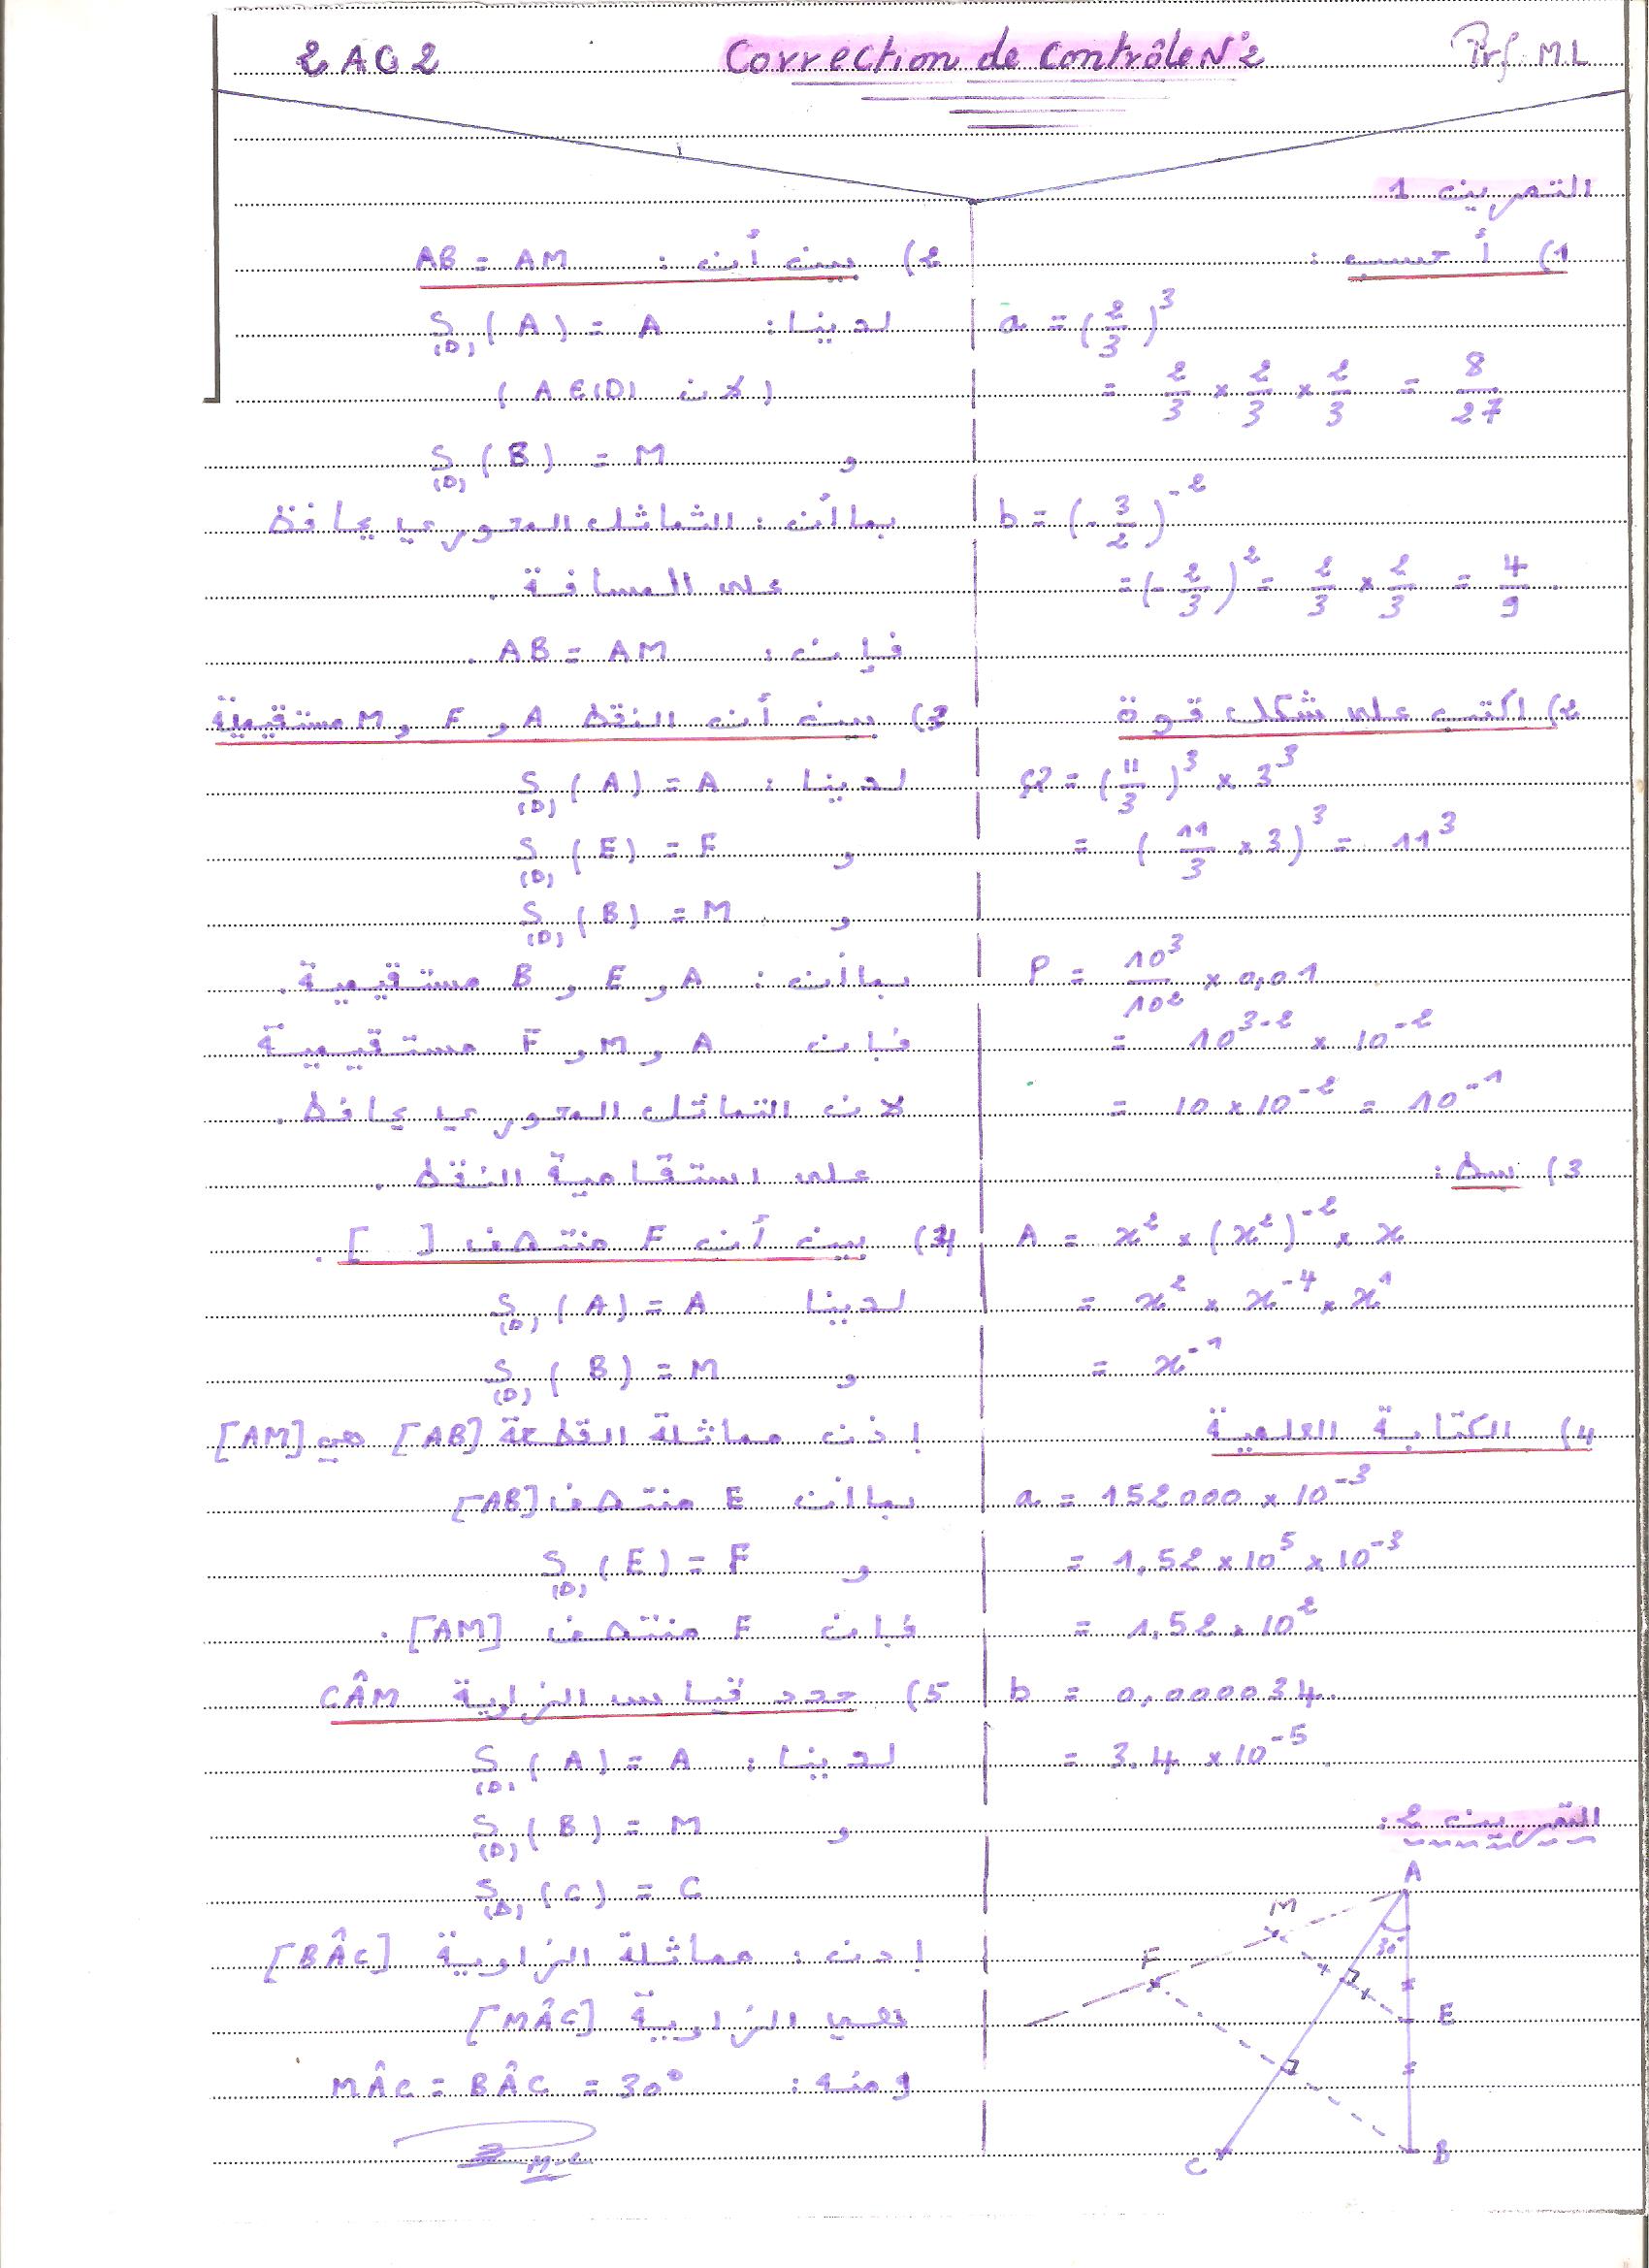 2AC2
Correction de Contrôle N°2
Prf: M.L
التمرين 1
1) أحسب :
a = (2/3)^3
= 2/3 × 2/3 × 2/3 = 8/27
b = (-3/2)^-2
= (-2/3)^2 = 2/3 × 2/3 = 4/9.
2) اكتب على شكل قوة
= (11/3)^3 × 3^3
= (11/3 × 3)^3 = 11^3
P = 10^3/10^2 × 0,01
= 10^3-2 × 10^-2
= 10 × 10^-2 = 10^-1
3) بسط :
A = x^2 × (x^2)^-2 × x
= x^2 × x^-4 × x^1
= x^-1
4) الكتابة العلمية
a = 152000 × 10^-3
= 1,52 × 10^5 × 10^-3
= 1,52 × 10^2
b = 0,000034.
= 3,4 × 10^-5
التمرين 2 :
A
M
30°
F
E
C
B
2) بين أن : AB = AM
لدينا : S(D)(A) = A
(لان A∈(D))
و S(D)(B) = M
بما أن : التماثل المحوري يحافظ
على المسافة .
فإن : AB = AM .
3) بين أن النقط A و F و M مستقيمية
لدينا : S(D)(A) = A
و S(D)(E) = F
و S(D)(B) = M
بما أن : A و E و B مستقيمية .
فإن A و M و F مستقيمية
لان التماثل المحوري يحافظ .
على استقامية النقط .
4) بين أن F منتصف [ ] .
لدينا S(D)(A) = A
و S(D)(B) = M
إذن مماثلة القطعة [AB] هي [AM]
بما أن E منتصف [AB]
و S(D)(E) = F
فإن F منتصف [AM] .
5) حدد قياس الزاوية CÂM
لدينا : S(D)(A) = A
و S(D)(B) = M
S(D)(C) = C
إذن : مماثلة الزاوية [BÂC]
هي الزاوية [MÂC]
ومنه : MÂC = BÂC = 30°